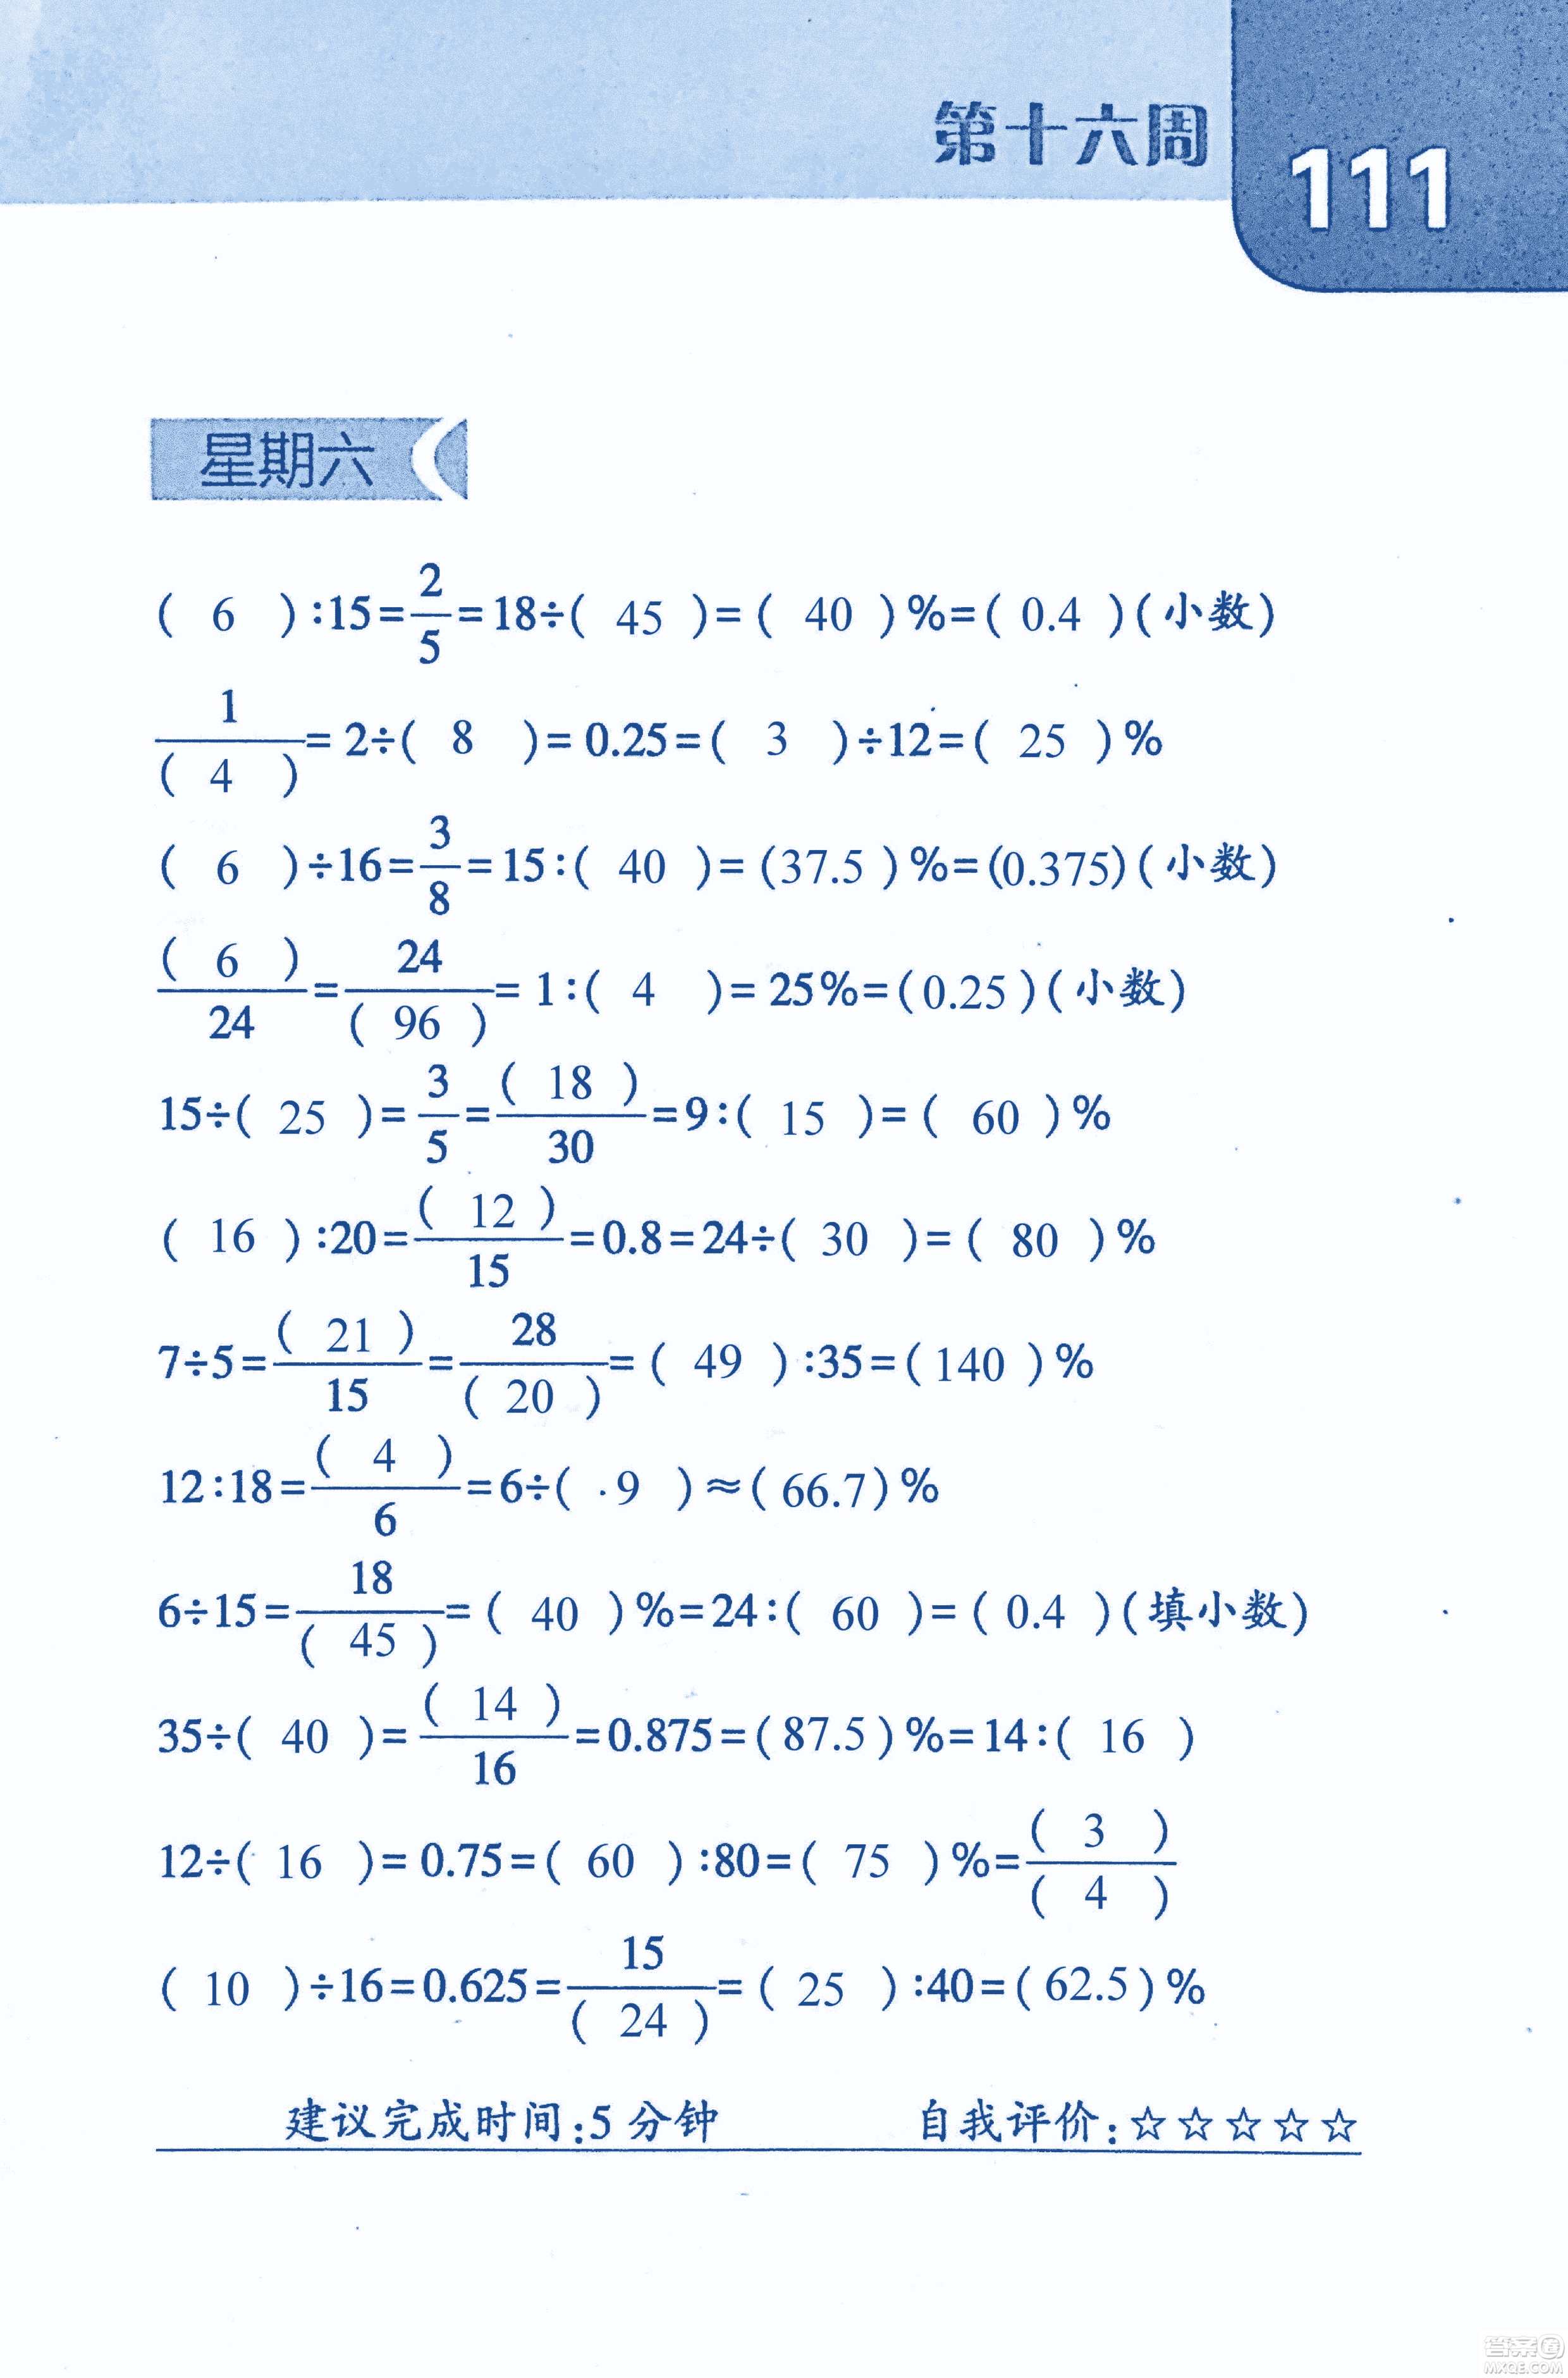 第十六周 111
星期六
( 6 ):15=2/5=18÷( 45 )=( 40 )%=( 0.4 )(小数)
1/( 4 )=2÷( 8 )=0.25=( 3 )÷12=( 25 )%
( 6 )÷16=3/8=15:( 40 )=(37.5)%=(0.375)(小数)
( 6 )/24=24/( 96 )=1:( 4 )=25%=(0.25)(小数)
15÷( 25 )=3/5=( 18 )/30=9:( 15 )=( 60 )%
( 16 ):20=( 12 )/15=0.8=24÷( 30 )=( 80 )%
7÷5=( 21 )/15=28/( 20 )=( 49 ):35=(140)%
12:18=( 4 )/6=6÷( 9 )≈(66.7)%
6÷15=18/( 45 )=( 40 )%=24:( 60 )=( 0.4 )(填小数)
35÷( 40 )=( 14 )/16=0.875=(87.5)%=14:( 16 )
12÷( 16 )=0.75=( 60 ):80=( 75 )%=( 3 )/( 4 )
( 10 )÷16=0.625=15/( 24 )=( 25 ):40=(62.5)%
建议完成时间:5分钟 自我评价:☆☆☆☆☆
答案圈
MXQE.COM